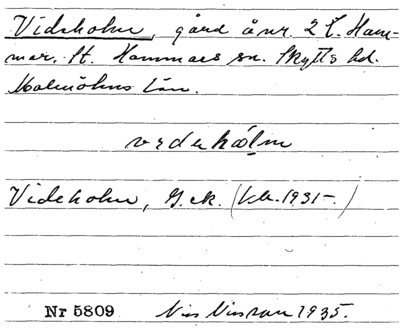 Videholm, gård å nr 2 L. Ham-
mar, St. Hammars sn. Skytts hd.
Malmöhus län.
vedehålm
Videholm, G.ek. (kla. 1931-)
Nr 5809 Nils Nilsson 1935.